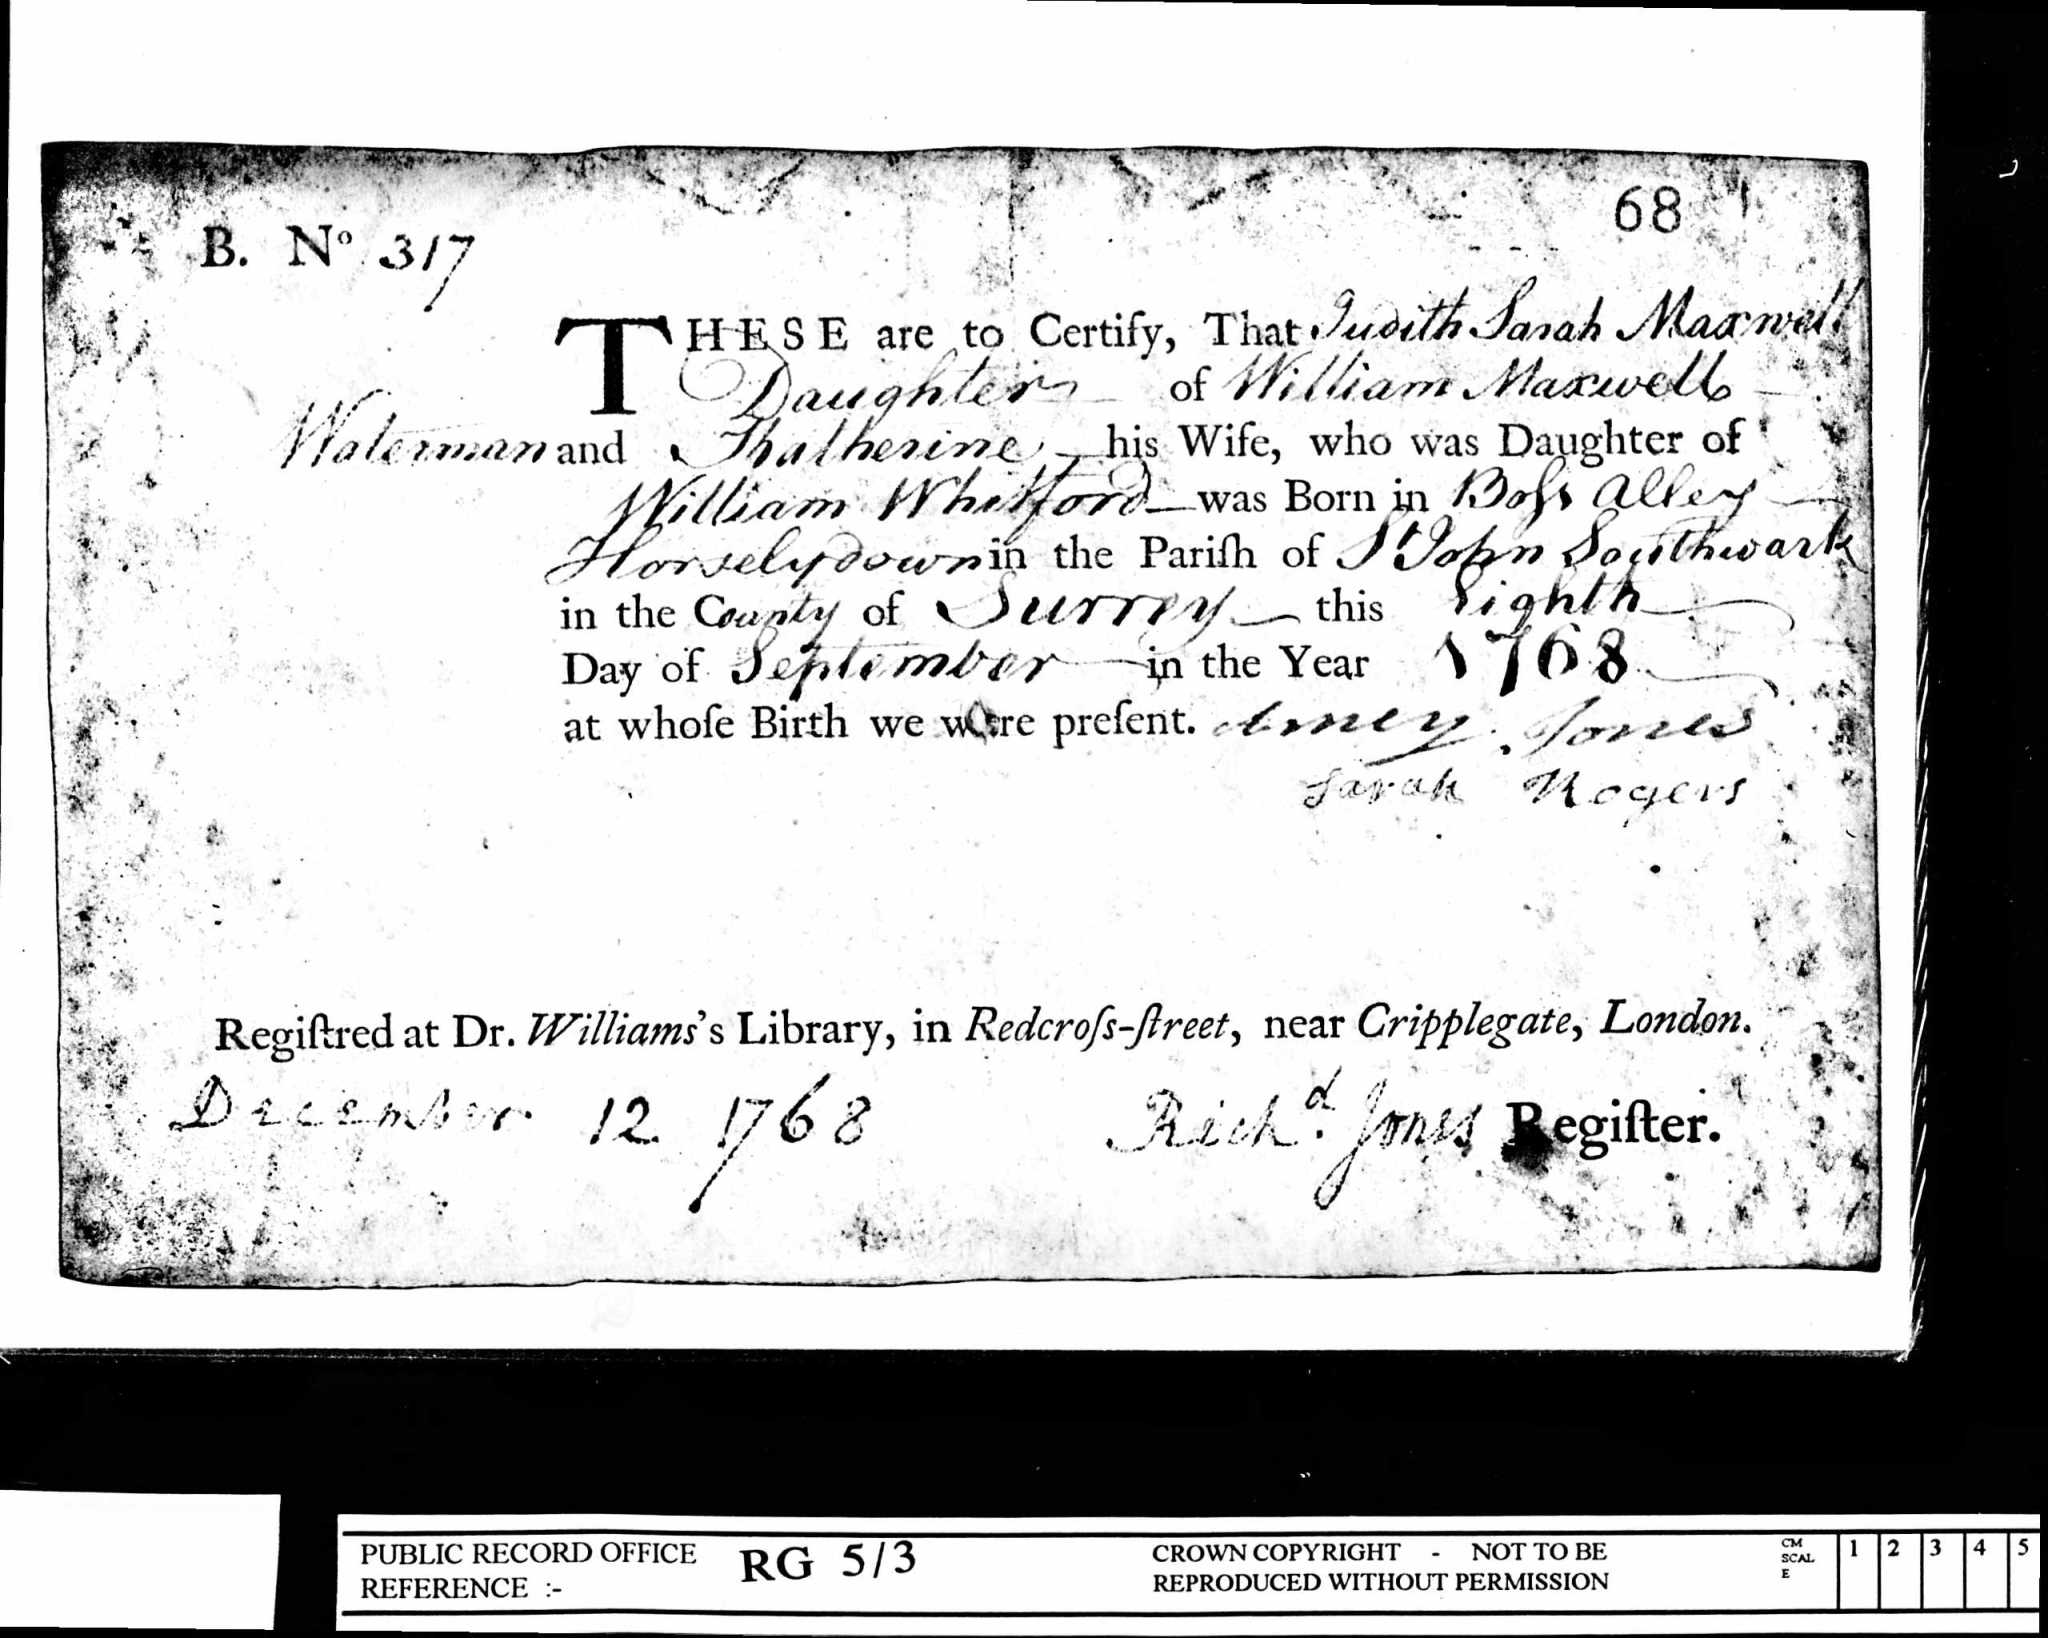 68
B. Nº 317
THESE are to Certify, That Judith Sarah Maxwell
Daughter of William Maxwell
Waterman and Thatherine his Wife, who was Daughter of
William Whitford was Born in Boſs Alley
Horselydown in the Pariſh of St John Southwark
in the County of Surrey this Eighth
Day of September in the Year 1768
at whoſe Birth we were preſent. Amey Jones
Sarah Rogers
Regiſtred at Dr. Williams's Library, in Redcroſs-ſtreet, near Cripplegate, London.
December 12 1768 Richd. Jones Regiſter.
PUBLIC RECORD OFFICE RG 5/3 CROWN COPYRIGHT - NOT TO BE CM 1 2 3 4 5
REFERENCE :- REPRODUCED WITHOUT PERMISSION SCAL
E